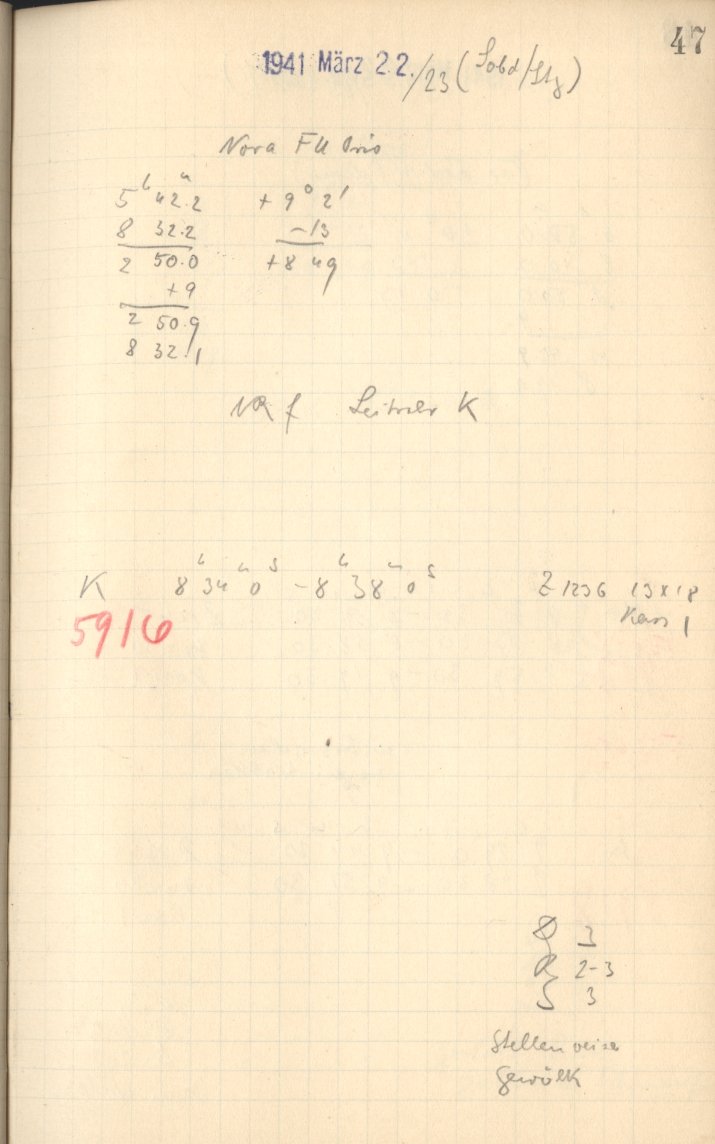 47
1941 März 22./23 (Sobd/Stg)
Nova FU Orio
5ʰ 42ᵐ.2 + 9° 2'
8 32.2 -13
2 50.0 +8 49
+9
2 50.9
8 32.1
f K
K 8ʰ 34ᵐ 0ˢ - 8ʰ 38ᵐ 0ˢ Z 1236 13x18
Kass 1
5916
3
R 2-3
S 3
Stellenweise
Gewölk